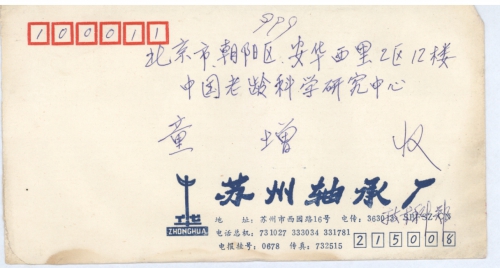 100011
999
北京市朝阳区安华西里2区12楼
中国老龄科学研究中心
童增 收
苏州轴承厂
ZHONGHUA
地 址:苏州市西园路16号 电传:
电话总机:731027 333034 331781
电报挂号:0678 传真:732515
215008